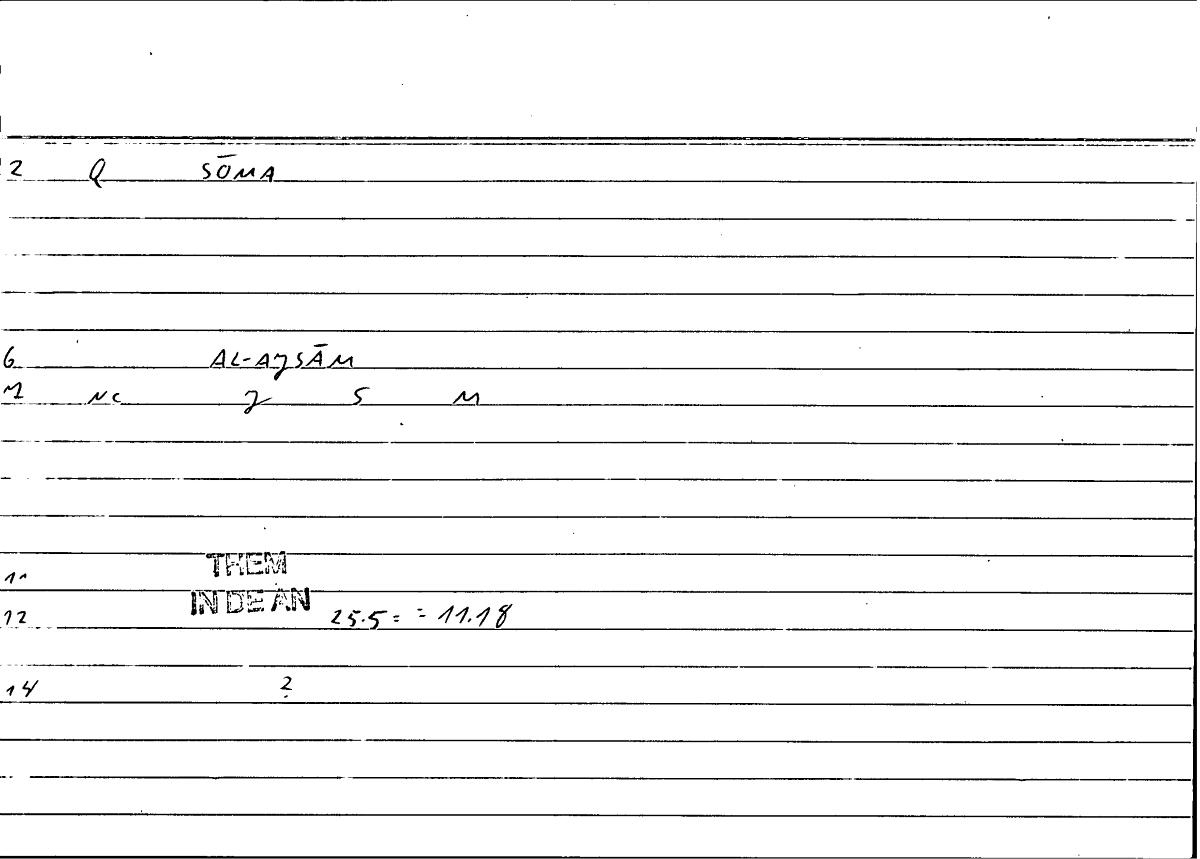 2 Q SŌMA
6 AL-AJSĀM
M NC J S M
11 THEM
IN DE AN
12 25.5 = = 11.18
14 ?